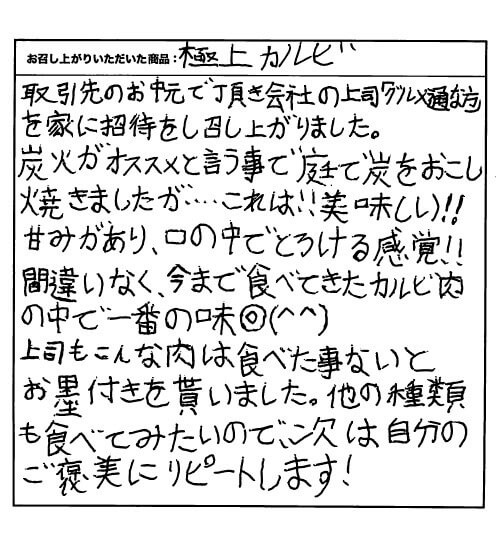 お召し上がりいただいた商品：極上カルビ
取引先のお中元で頂き会社の上司グルメ通な方
を家に招待をし召し上がりました。
炭火がオススメと言う事で庭で炭をおこし
焼きましたが‥‥これは!!美味しい)!!
甘みがあり、口の中でとろける感覚!!
間違いなく、今まで食べてきたカルビ肉
の中で一番の味◎(^^)
上司もこんな肉は食べた事ないと
お墨付きを貰いました。他の種類
も食べてみたいので、次は自分の
ご褒美にリピートします!